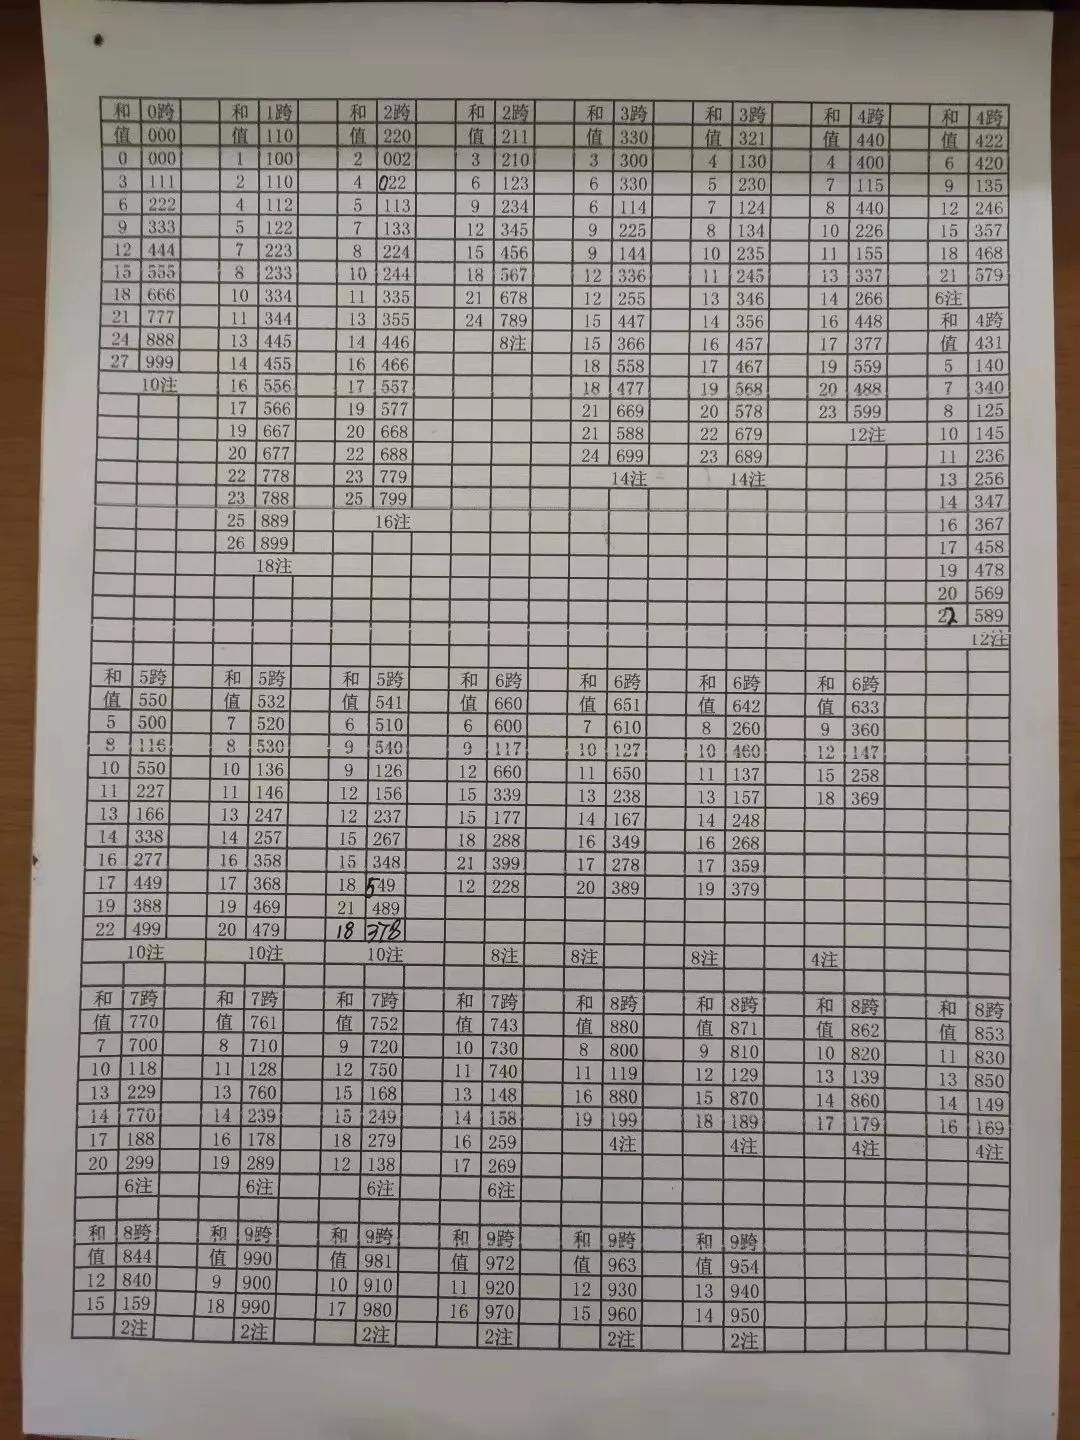 和 0跨 和 1跨 和 2跨 和 2跨 和 3跨 和 3跨 和 4跨 和 4跨
值 000 值 110 值 220 值 211 值 330 值 321 值 440 值 422
0 000 1 100 2 002 3 210 3 300 4 130 4 400 6 420
3 111 2 110 4 022 6 123 6 330 5 230 7 115 9 135
6 222 4 112 5 113 9 234 6 114 7 124 8 440 12 246
9 333 5 122 7 133 12 345 9 225 8 134 10 226 15 357
12 444 7 223 8 224 15 456 9 144 10 235 11 155 18 468
15 555 8 233 10 244 18 567 12 336 11 245 13 337 21 579
18 666 10 334 11 335 21 678 12 255 13 346 14 266 6注
21 777 11 344 13 355 24 789 15 447 14 356 16 448 和 4跨
24 888 13 445 14 446 8注 15 366 16 457 17 377 值 431
27 999 14 455 16 466 18 558 17 467 19 559 5 140
10注 16 556 17 557 18 477 19 568 20 488 7 340
17 566 19 577 21 669 20 578 23 599 8 125
19 667 20 668 21 588 22 679 12注 10 145
20 677 22 688 24 699 23 689 11 236
22 778 23 779 14注 14注 13 256
23 788 25 799 14 347
25 889 16注 16 367
26 899 17 458
18注 19 478
20 569
22 589
12注
和 5跨 和 5跨 和 5跨 和 6跨 和 6跨 和 6跨 和 6跨
值 550 值 532 值 541 值 660 值 651 值 642 值 633
5 500 7 520 6 510 6 600 7 610 8 260 9 360
8 116 8 530 9 540 9 117 10 127 10 460 12 147
10 550 10 136 9 126 12 660 11 650 11 137 15 258
11 227 11 146 12 156 15 339 13 238 13 157 18 369
13 166 13 247 12 237 15 177 14 167 14 248
14 338 14 257 15 267 18 288 16 349 16 268
16 277 16 358 15 348 21 399 17 278 17 359
17 449 17 368 18 549 12 228 20 389 19 379
19 388 19 469 21 489
22 499 20 479 18 378
10注 10注 10注 8注 8注 8注 4注
和 7跨 和 7跨 和 7跨 和 7跨 和 8跨 和 8跨 和 8跨 和 8跨
值 770 值 761 值 752 值 743 值 880 值 871 值 862 值 853
7 700 8 710 9 720 10 730 8 800 9 810 10 820 11 830
10 118 11 128 12 750 11 740 11 119 12 129 13 139 13 850
13 229 13 760 15 168 13 148 16 880 15 870 14 860 14 149
14 770 14 239 15 249 14 158 19 199 18 189 17 179 16 169
17 188 16 178 18 279 16 259 4注 4注 4注 4注
20 299 19 289 12 138 17 269
6注 6注 6注 6注
和 8跨 和 9跨 和 9跨 和 9跨 和 9跨 和 9跨
值 844 值 990 值 981 值 972 值 963 值 954
12 840 9 900 10 910 11 920 12 930 13 940
15 159 18 990 17 980 16 970 15 960 14 950
2注 2注 2注 2注 2注 2注